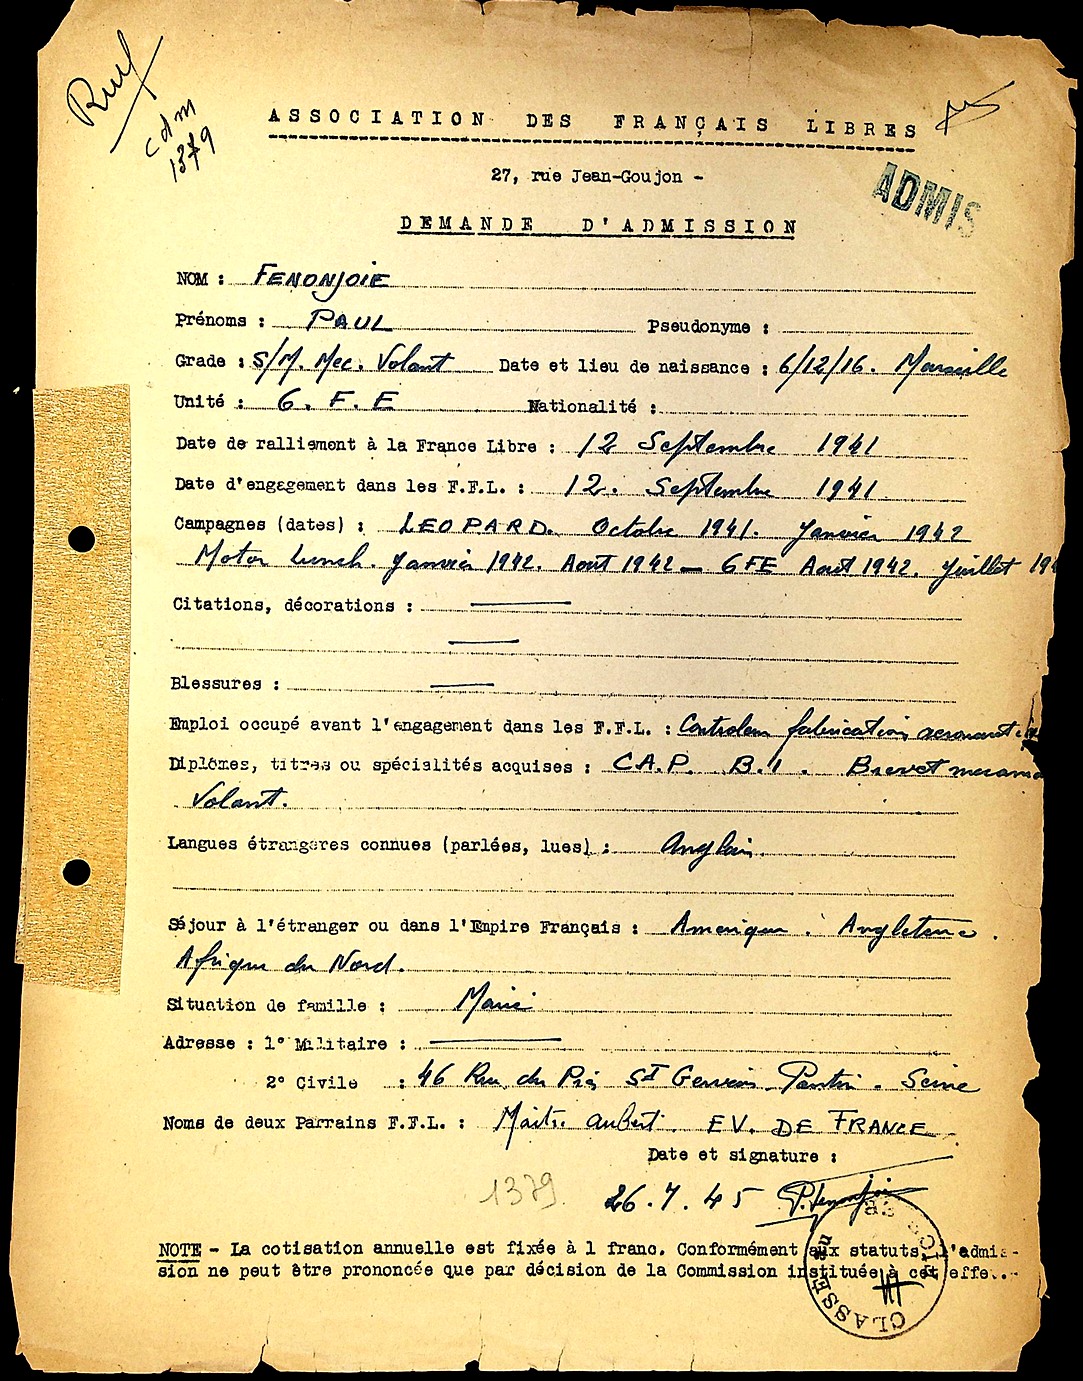 cdm
1379
ASSOCIATION DES FRANÇAIS LIBRES
27, rue Jean-Goujon -
ADMIS
DEMANDE D'ADMISSION
NOM : FENONJOIE
Prénoms : PAUL Pseudonyme :
Grade : S/M. Mec. Volant Date et lieu de naissance : 6/12/16. Marseille
Unité : 6. F. E Nationalité :
Date de ralliement à la France Libre : 12 Septembre 1941
Date d'engagement dans les F.F.L. : 12. Septembre 1941
Campagnes (dates) : LEOPARD. Octobre 1941. Janvier 1942
Motor Lunch. Janvier 1942. Aout 1942 — 6FE Aout 1942. Juillet 194
Citations, décorations :
Blessures :
Emploi occupé avant l'engagement dans les F.F.L. : Controleur fabrication
Diplômes, titres ou spécialités acquises : C.A.P. B.I. Brevet
Volant.
Langues étrangères connues (parlées, lues) : Anglais
Séjour à l'étranger ou dans l'Empire Français : Amerique. Angleterre.
Afrique du Nord.
Situation de famille : Marié
Adresse : 1° Militaire :
2° Civile : 46 Rue du Pré St Gervais Pantin - Seine
Noms de deux Parrains F.F.L. : Maitre Aubert. EV. DE FRANCE
Date et signature :
1379. 26.7.45 P. Fenonjoie
NOTE - La cotisation annuelle est fixée à 1 franc. Conformément aux statuts, l'admis-
sion ne peut être prononcée que par décision de la Commission instituée à cet effe..
CLASSE au